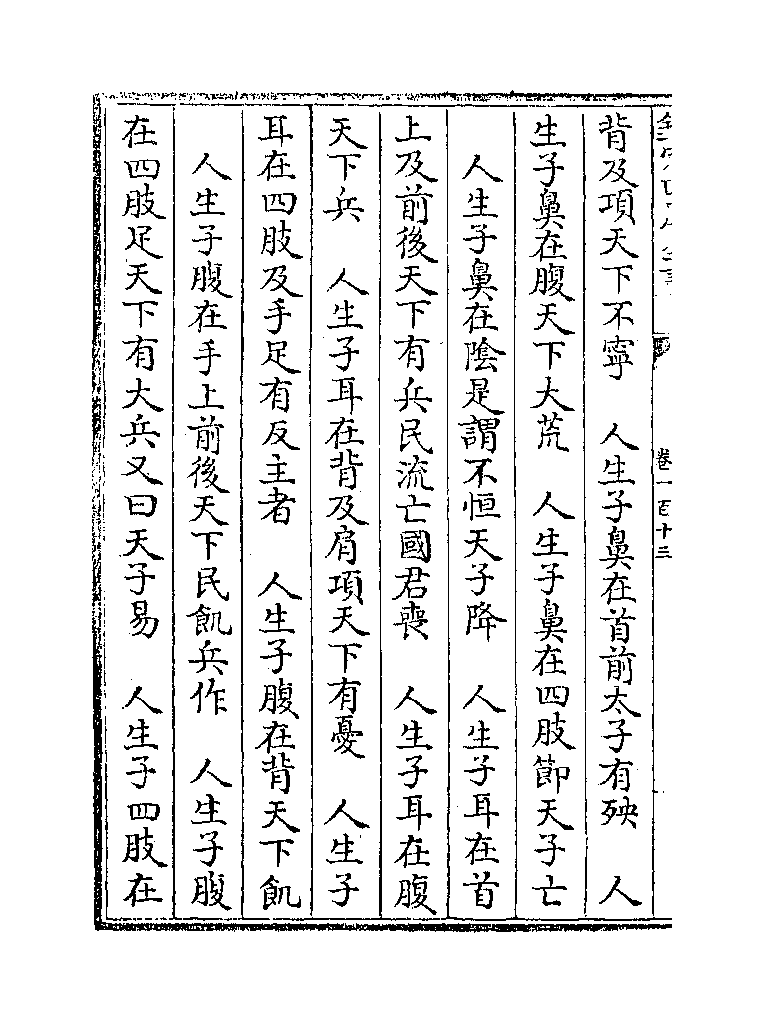 卷一百十三
背及項天下不寧　人生子鼻在首前太子有殃　人
生子鼻在腹天下大荒　人生子鼻在四肢節天子亡
人生子鼻在陰是謂不恒天子降　人生子耳在首
上及前後天下有兵民流亡國君喪　人生子耳在腹
天下兵　人生子耳在背及肩項天下有憂　人生子
耳在四肢及手足有反主者　人生子腹在背天下飢
人生子腹在手上前後天下民飢兵作　人生子腹
在四肢足天下有大兵又曰天子易　人生子四肢在